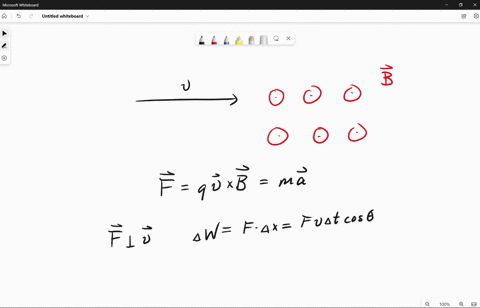 Microsoft Whiteboard
Untitled whiteboard
v
B⃗
F⃗ = q v⃗ × B⃗ = m a⃗
F⃗ ⊥ v⃗
ΔW = F · Δx = F v Δt cos θ
100%